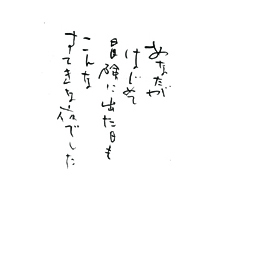 あなたが
はじめて
冒険に出た日も
こんな
すてきな夜でした